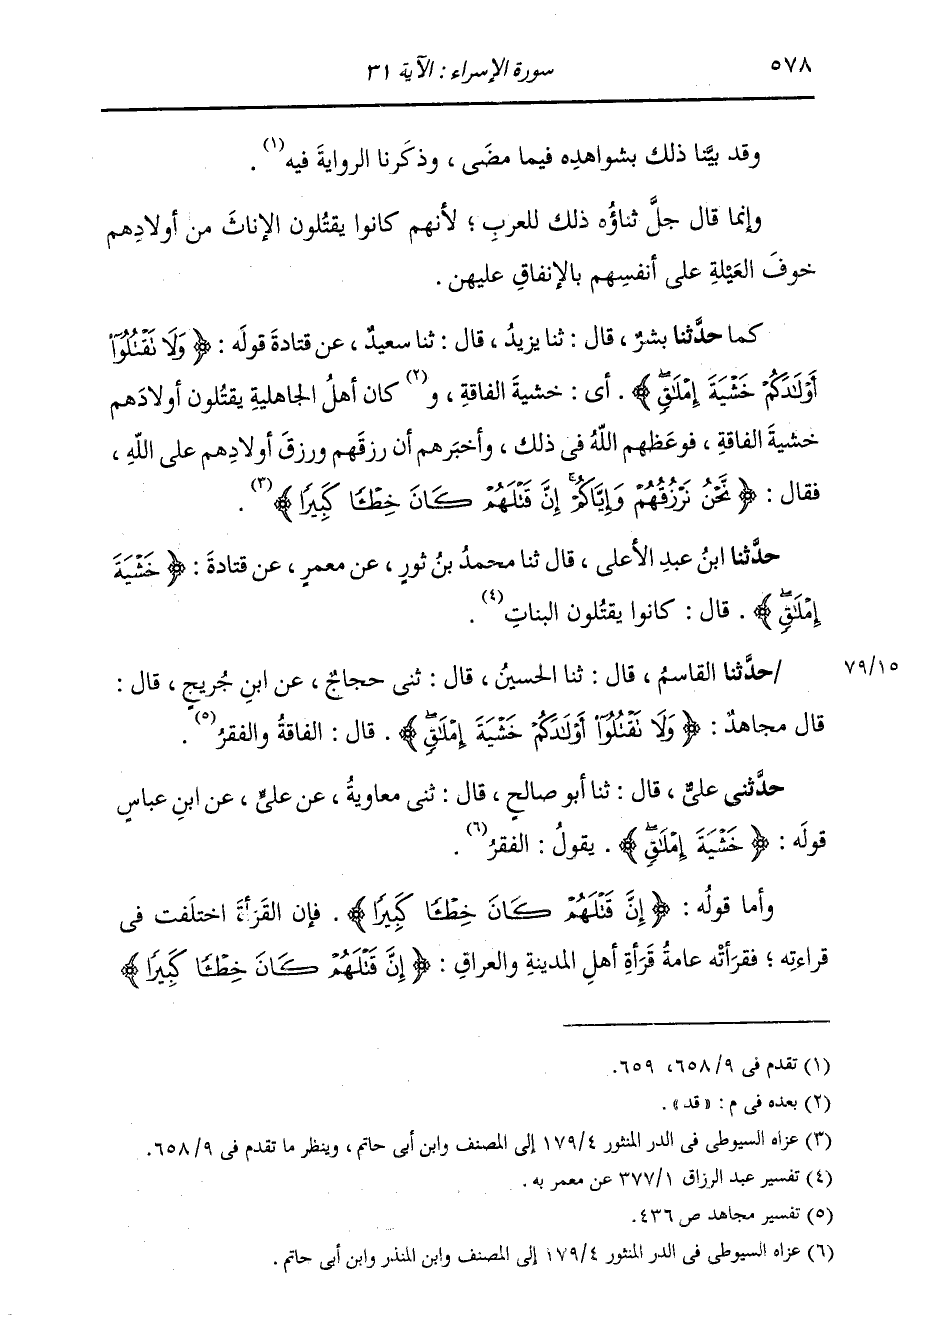 ٥٧٨
سورة الإسراء : الآية ٣١
وقد بيَّنا ذلك بشواهدِه فيما مضَى ، وذكَرنا الروايةَ فيه(١) .
وإنما قال جلَّ ثناؤُه ذلك للعربِ ؛ لأنهم كانوا يقتُلون الإناثَ من أولادِهم
خوفَ العَيْلةِ على أنفسِهم بالإنفاقِ عليهن .
كما حدَّثنا بشرٌ ، قال : ثنا يزيدُ ، قال : ثنا سعيدٌ ، عن قتادةَ قولَه : ﴿ وَلَا نَقْنُلُوٓا۟
أَوْلَٰدَكُمْ خَشْيَةَ إِمْلَٰقٍۖ ﴾ . أى : خشيةَ الفاقةِ ، و(٢) كان أهلُ الجاهليةِ يقتُلون أولادَهم
خشيةَ الفاقةِ ، فوعَظهم اللَّهُ فى ذلك ، وأخبَرهم أن رزقَهم ورزقَ أولادِهم على اللَّهِ ،
فقال : ﴿ نَّحْنُ نَرْزُقُهُمْ وَإِيَّاكُمْۚ إِنَّ قَتْلَهُمْ كَانَ خِطْـًٔا كَبِيرًا ﴾(٣) .
حدَّثنا ابنُ عبدِ الأعلى ، قال ثنا محمدُ بنُ ثورٍ ، عن معمرٍ ، عن قتادةَ : ﴿ خَشْيَةَ
إِمْلَٰقٍۖ ﴾ . قال : كانوا يقتُلون البناتِ(٤) .
٧٩/١٥
/حدَّثنا القاسمُ ، قال : ثنا الحسينُ ، قال : ثنى حجاجٌ ، عن ابنِ جُريجٍ ، قال :
قال مجاهدٌ : ﴿ وَلَا نَقْنُلُوٓا۟ أَوْلَٰدَكُمْ خَشْيَةَ إِمْلَٰقٍۖ ﴾ . قال : الفاقةُ والفقرُ(٥) .
حدَّثنى علىٌّ ، قال : ثنا أبو صالحٍ ، قال : ثنى معاويةُ ، عن علىٍّ ، عن ابنِ عباسٍ
قولَه : ﴿ خَشْيَةَ إِمْلَٰقٍۖ ﴾ . يقولُ : الفقرُ(٦) .
وأما قولُه : ﴿ إِنَّ قَتْلَهُمْ كَانَ خِطْـًٔا كَبِيرًا ﴾ . فإن القَرَأةَ اختلَفت فى
قراءتِه ؛ فقرَأتْه عامةُ قَرَأةِ أهلِ المدينةِ والعراقِ : ﴿ إِنَّ قَتْلَهُمْ كَانَ خِطْـًٔا كَبِيرًا ﴾
(١) تقدم فى ٩/ ٦٥٨، ٦٥٩.
(٢) بعده فى م : « قد » .
(٣) عزاه السيوطى فى الدر المنثور ١٧٩/٤ إلى المصنف وابن أبى حاتم ، وينظر ما تقدم فى ٩/ ٦٥٨.
(٤) تفسير عبد الرزاق ٣٧٧/١ عن معمر به .
(٥) تفسير مجاهد ص ٤٣٦.
(٦) عزاه السيوطى فى الدر المنثور ١٧٩/٤ إلى المصنف وابن المنذر وابن أبى حاتم .